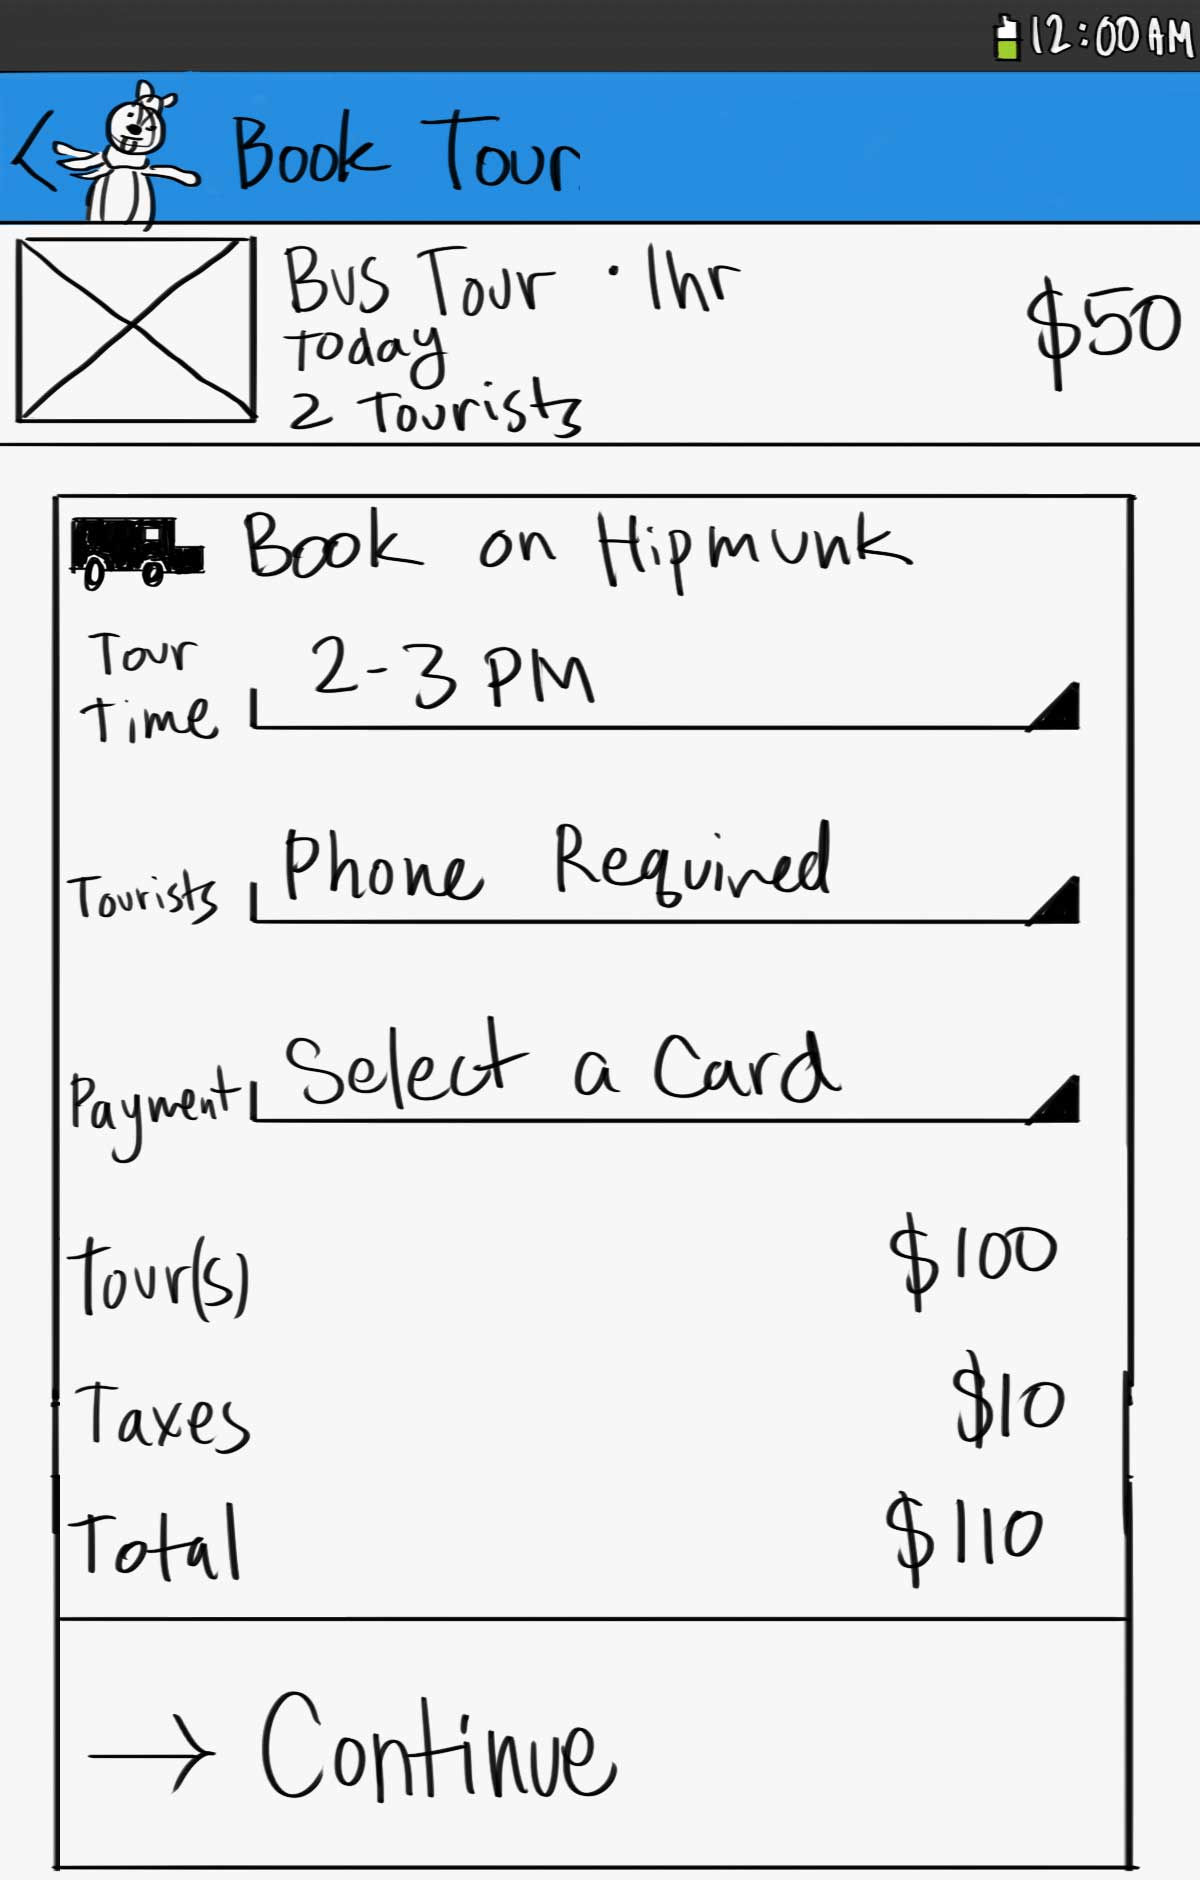 12:00 AM
< Book Tour
Bus Tour · 1hr
Today
2 Tourists
$50
Book on Hipmunk
Tour
Time
2-3 PM
Tourists
Phone Required
Payment
Select a Card
Tour(s) $100
Taxes $10
Total $110
→ Continue